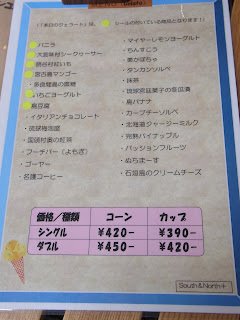 「本日のジェラート」は、 シールの付いている商品となります！
・バニラ
・大宜味村シークヮーサー
・読谷村紅いも
・宮古島マンゴー
・多良間島の黒糖
・いちごヨーグルト
・島豆腐
・イタリアンチョコレート
・琉球梅泡盛
・国頭村奥の紅茶
・フーチバー（よもぎ）
・ゴーヤー
・名護コーヒー
・マイヤーレモンヨーグルト
・ちんすこう
・美かぼちゃ
・タンカンソルベ
・抹茶
・琉球宮廷菓子の冬瓜漬
・島バナナ
・カーブチーソルベ
・北海道ジャージーミルク
・完熟パイナップル
・パッションフルーツ
・ぬちまーす
・石垣島のクリームチーズ
価格／種類 コーン カップ
シングル ¥420− ¥390−
ダブル ¥450− ¥420−
South&North+